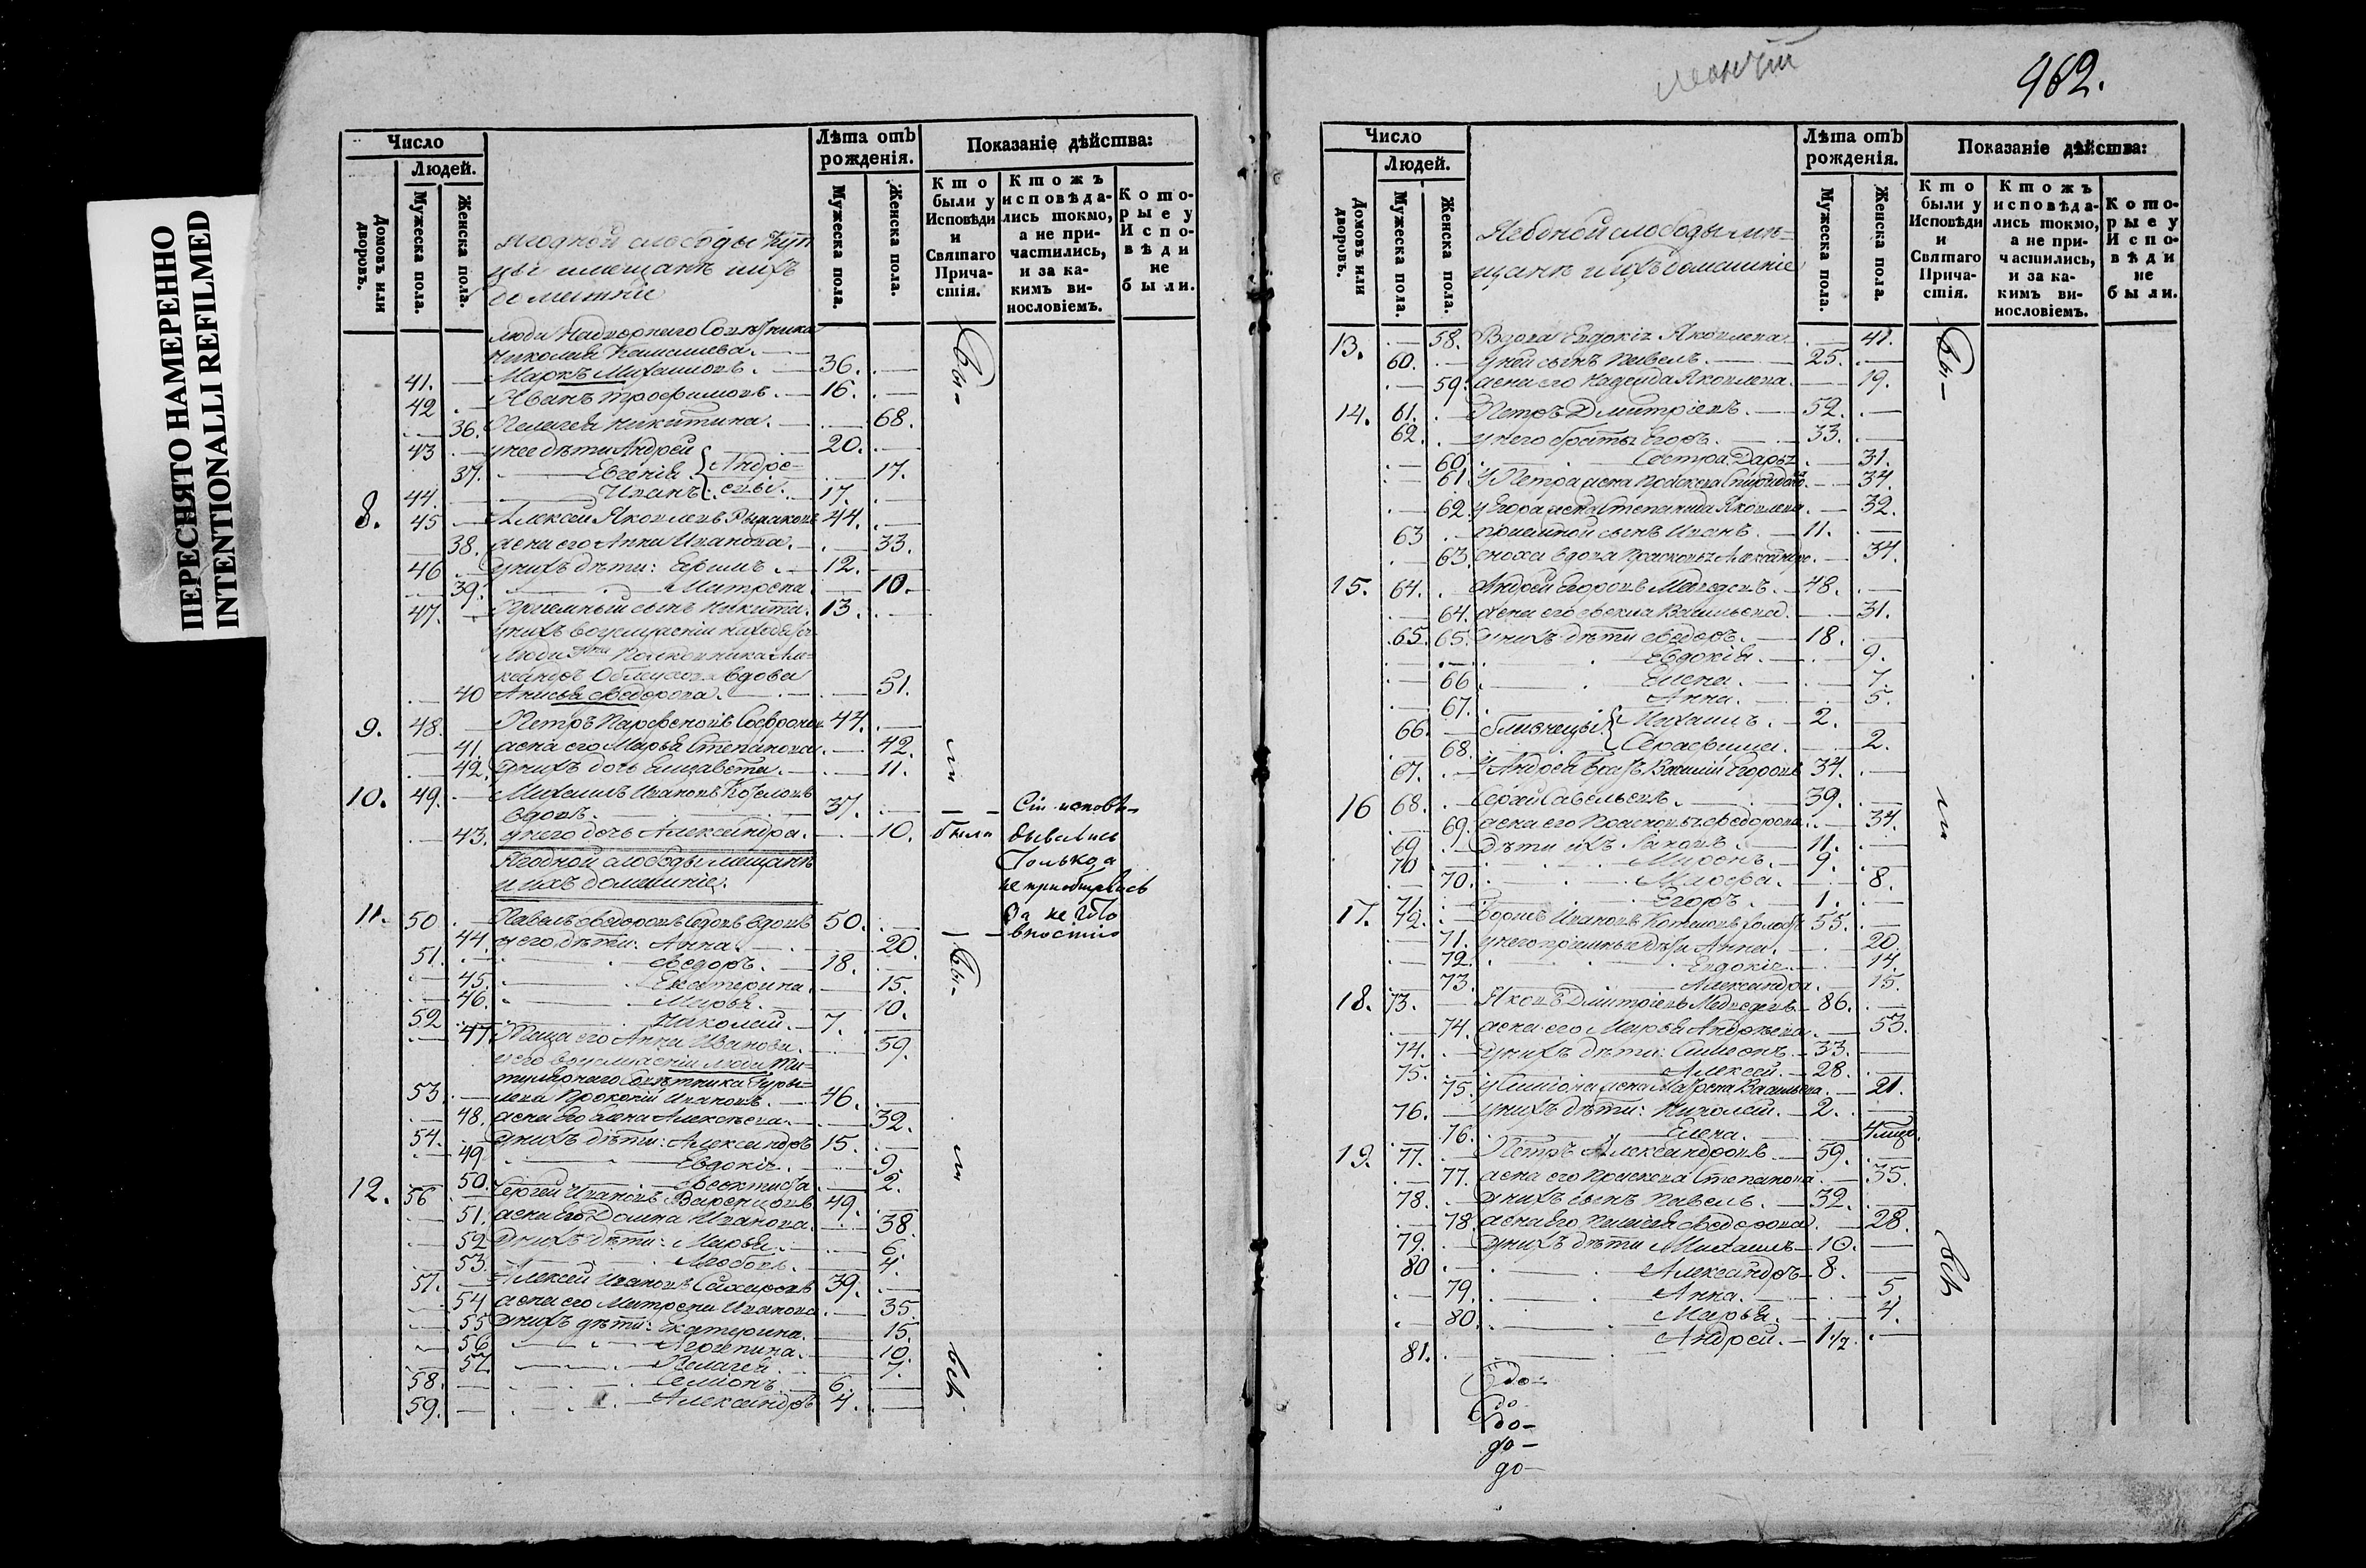 ПЕРЕСНЯТО НАМЕРЕННО
INTENTIONALLI REFILMED
Число
Людей.
Домовъ или дворовъ.
Мужеска пола.
Женска пола.
Ягодной слободы Куп
цы и мещанъ и ихъ
Лѣта отъ рожденія.
Мужеска пола.
Женска пола.
Показаніе дѣйства:
Кто были у Исповѣди и Святаго Причастія.
Ктожъ исповѣдались токмо, а не причастились, и за какимъ винословіемъ.
Которые у Исповѣди не были.
Люди Надворнаго Совѣтника
Николая
41. Маркъ Михаиловъ. 36.
42. Иванъ Трофимовъ. 16.
36. Пелагея Никитина. 68.
43. у нее дѣти Андрей 20.
37. Евгенія Андре- 17.
44. Иванъ евы. 17.
8. 45 Алексей Яковлевъ 44.
38. жена его Анна Иванова. 33.
46 у нихъ дѣти: Ефимъ. 12.
39. Матрена 10.
47. Приемный сынъ Никита. 13.
у нихъ въ услуженіи находятся
вдова
40 Анисья Федорова. 51.
9. 48. Петръ Парфеновъ 44.
41. жена его Марья Степанова. 42.
42. У нихъ дочь Елизавета. 11.
10. 49. Михаилъ Ивановъ Козловъ
вдовъ. 37.
43. у него дочь Александра. 10.
Ягодной слободы мещанъ
и ихъ домашніе.
Сіи исповѣ-
были дывались
Только, а
не приобщались
За не гото
вностію
11. 50 Павелъ Федоровъ вдовъ 50.
44. у его дѣти: Анна. 20.
51. Федоръ. 18.
45. Екатерина. 15.
46. Марья. 10.
52 Николай. 7.
47 Теща его Анна Иванова. 59.
у его въ услуженіи люди Ти-
тулярнаго Совѣтника
53. Прокопій Ивановъ. 46.
48. жена его Елена Алексѣева. 32.
54. у нихъ дѣти: Александръ 15.
49 Евдокія. 9.
50. Феоктиста. 2.
12. 56 Сергей Ивановъ 49.
51. жена его Домна Иванова. 38.
52 У нихъ дѣти: Марья. 6.
53. Любовь. 4.
57. Алексей Ивановъ Сахаровъ 39.
54 жена его Матрена Иванова. 35
55 У нихъ дѣти: Екатерина. 15.
56 Агрепина. 10.
57 Пелагея 7.
58. Семіонъ 6.
59. Александръ 4.
Бы-
ли
Бы-
ли
всѣ
462.
Число
Людей.
Домовъ или дворовъ.
Мужеска пола.
Женска пола.
Ягодной слободы ме-
щанъ и ихъ домашніе
Лѣта отъ рожденія.
Мужеска пола.
Женска пола.
Показаніе дѣйства:
Кто были у Исповѣди и Святаго Причастія.
Ктожъ исповѣдались токмо, а не причастились, и за какимъ винословіемъ.
Которые у Исповѣди не были.
13. 58. Вдова Евдокія Яковлева 41.
60. У ней сынъ Павелъ. 25.
59. жена его Надежда Яковлева. 19.
14. 61. Петръ Дмитріевъ. 52.
62. у него братъ Егоръ. 33.
60. Сестра Дарья 31.
61. У Петра жена 34.
62. у Егора жена Степанида Яковлева. 32.
63 приемной сынъ Иванъ. 11.
63. сноха вдова 34.
15. 64. Андрей Егоровъ Медведевъ. 48.
64. жена его Фекла Васильева. 31.
65. 65. У нихъ дѣти Федоръ. 18.
Евдокія. 9.
66 Елена. 7.
67. Анна. 5.
66. близнецы: Михаилъ. 2.
68. Серафима. 2.
67. У Андрея братъ Василій Егоровъ 34.
16 68. Сергей Савельевъ. 39.
69. жена его Прасковья Федорова. 34.
69 Дѣти ихъ Яковъ. 11.
70 Миронъ. 9.
70. Марфа. 8.
71. Егоръ. 1.
17. 72. Ивановъ 55.
71. у него приемные дѣти Анна. 20.
72. Евдокія. 14.
73. Александра. 15.
18. 73. Яковъ Дмитріевъ Медведевъ 86.
74. жена его Марья Андреева. 53.
74. у нихъ дѣти: Симеонъ. 33.
75. Алексей. 28.
75. у Симіона жена Матрена Васильева. 21.
76. у нихъ дѣти: Николай. 2.
76. Елена.
19. 77. Петръ Александровъ 59.
77. жена его Прасковья Степанова 35.
78. у нихъ сынъ Павелъ. 32.
78. жена его Пелагея Федорова. 28.
79. У нихъ дѣти Михаилъ 10.
80 Александръ 8.
79. Анна. 5.
80. Марья. 4.
81. Андрей. 1 1/2.
Бы-
ли
всѣ
до-
до-
до-
до-
до-